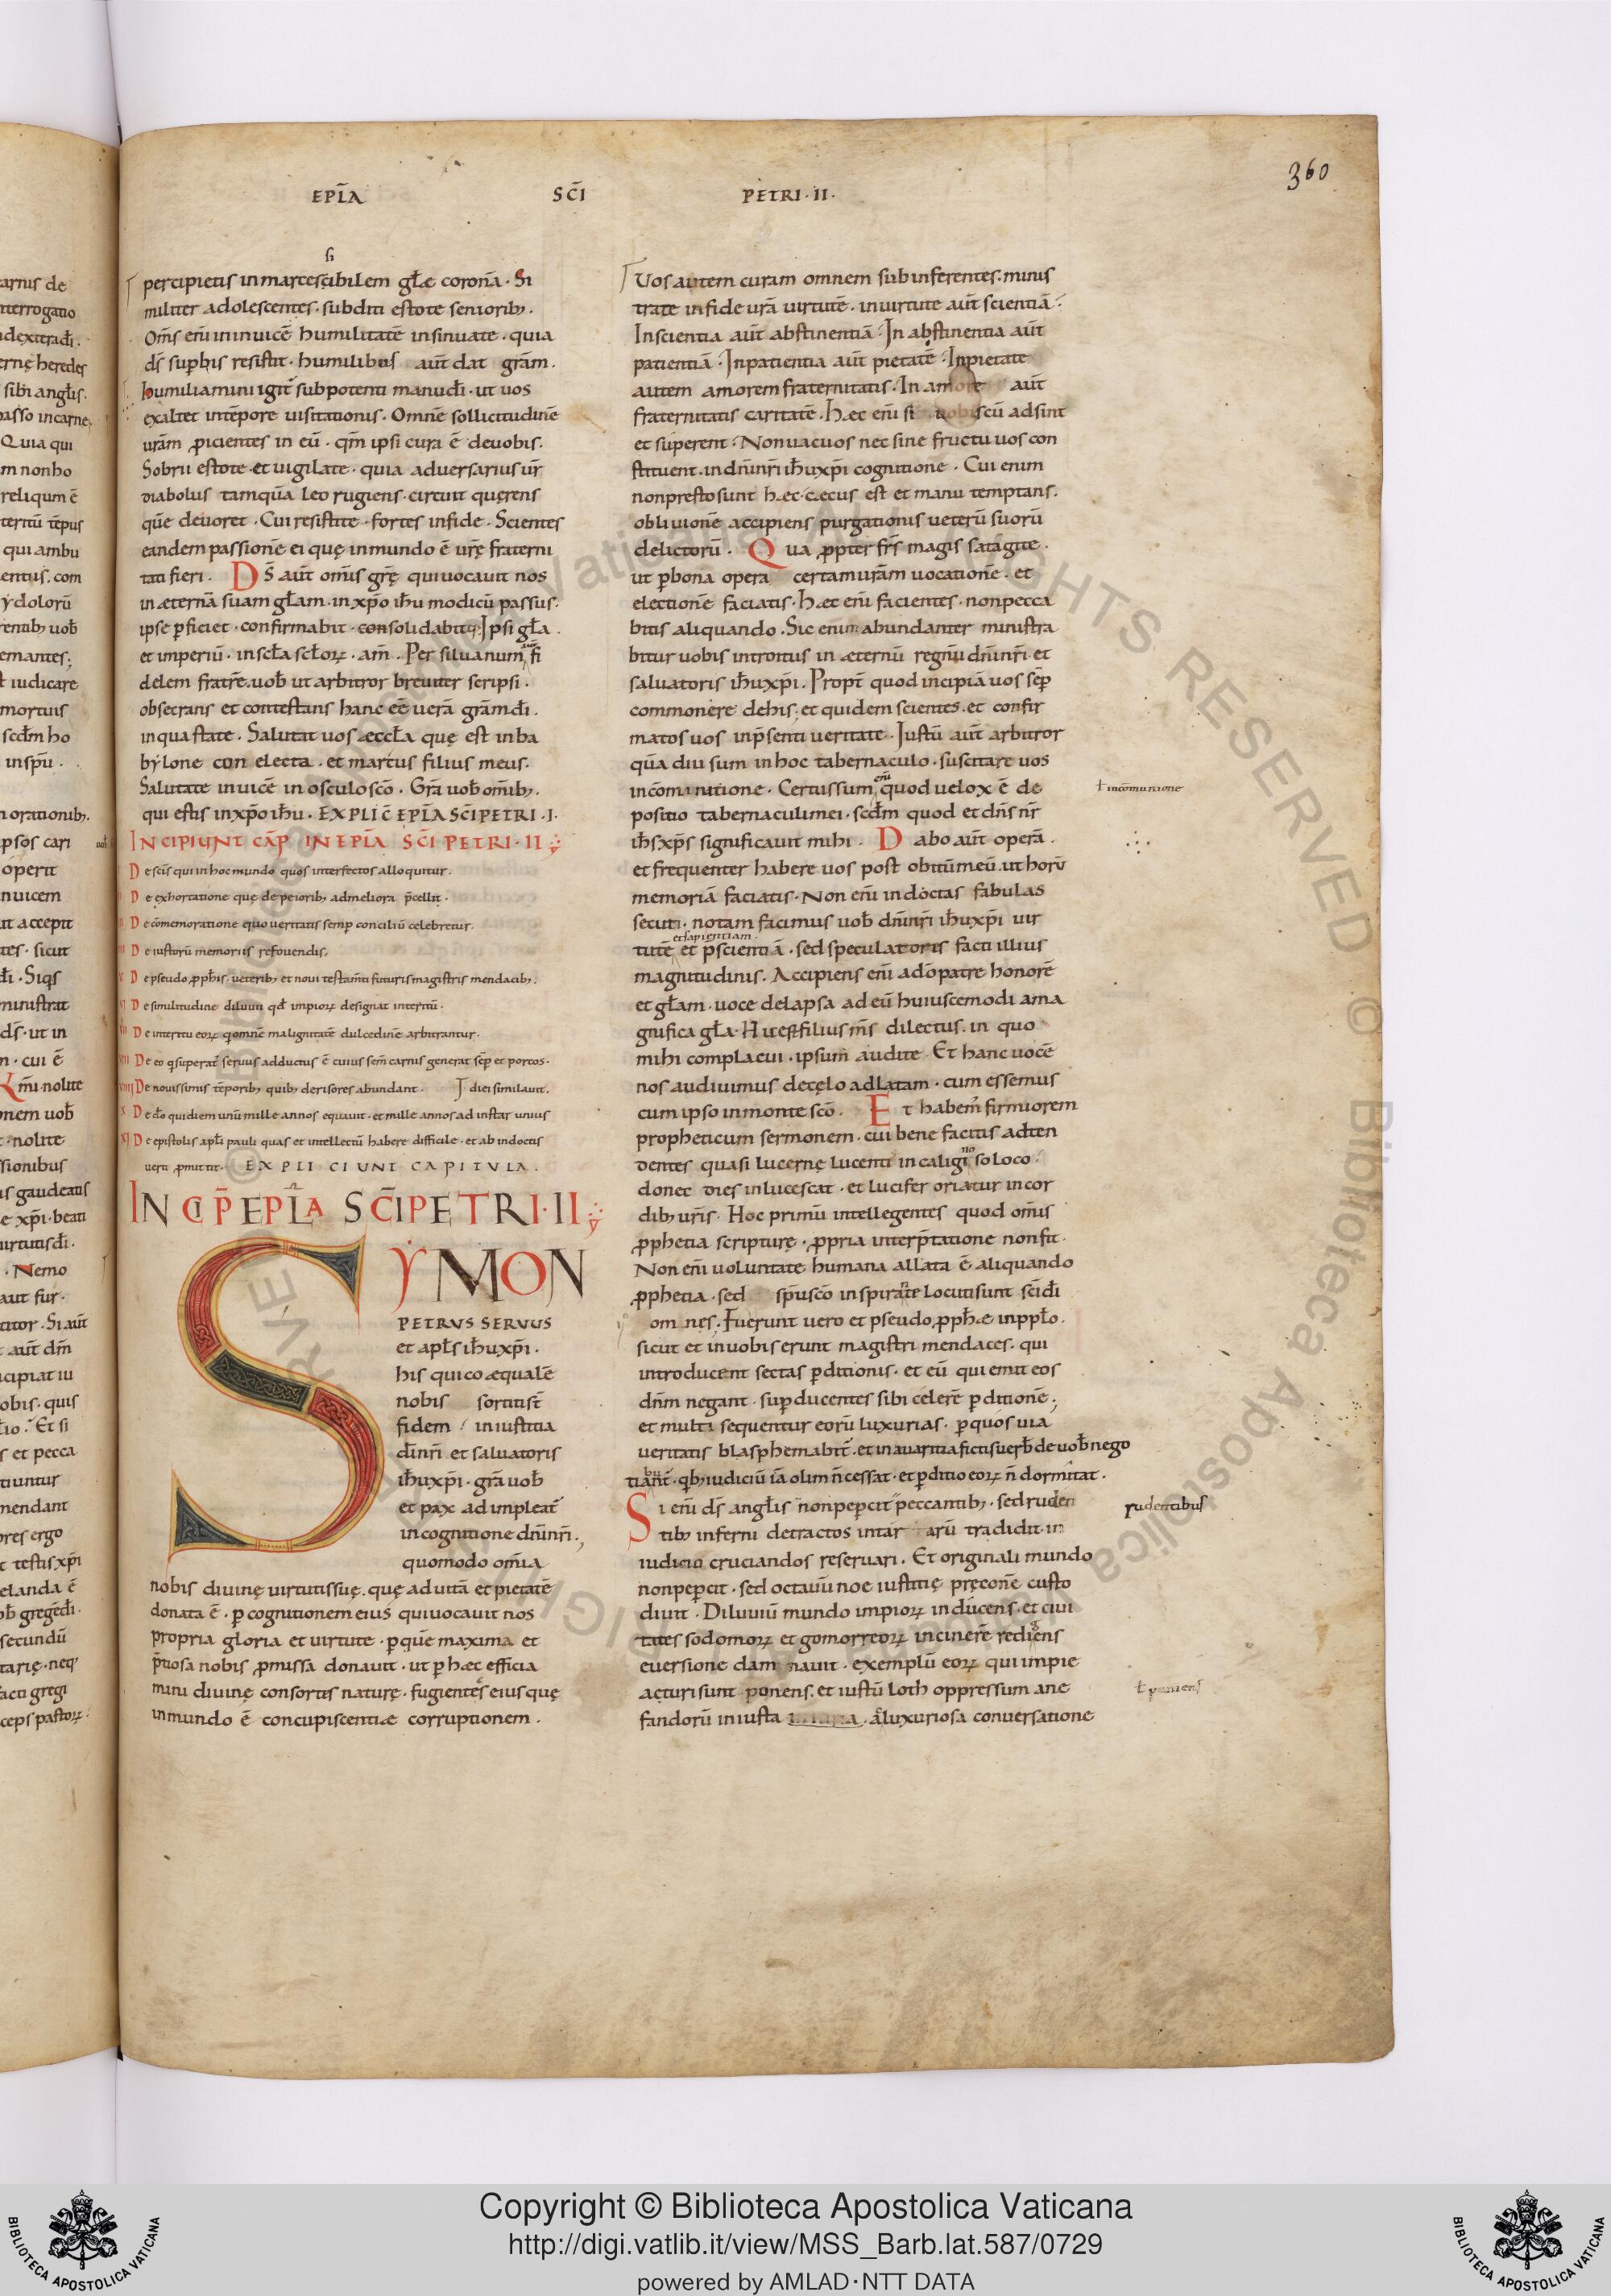 360
EPŁA SC̄I PETRI·II·
percipietis inmarcescibilem głæ coronā· Si
militer adolescentes· subditi estote seniorib;·
Om̄s enī ininuicē humilitatē insinuate· quia
ds̄ supbis resistit· humilibus aut̄ dat grām·
humiliamini igit̄ subpotenti manudī· ut uos
exaltet intēpore uisitationis· Omnē sollicitudinē
urām ꝓicientes in eū· qm̄ ipsi cura ē deuobis·
Sobrii estote et uigilate· quia aduersarius ur̄
diabolus tamquā leo rugiens· circuit quęrens
quē deuoret· Cui resistite· fortes infide· Scientes
eandem passionē ei quę inmundo ē urę̄ fraterni
tati fieri· Ds̄ aut̄ om̄is grę̄ quiuocauit nos
in æternā suam głam· in xp̄o ihu modicū passus·
ipse ꝑficiet· confirmabit· consolidabitq; Ipsi gła·
et imperiū· in scła scłoꝝ· am̄· Per siluanum fi
delem fratrē uob̄ ut arbitror breuiter scripsi·
obsecrans et contestans hanc eē uerā grāmdī·
inqua state· Salutat uos æccła quę est in ba
bẏlone con electa· et marcus filius meus·
Salutate inuicē in osculo scō· Grā uob̄ omīb;·
qui estis inxp̄o ihu· EXPLIC̄ EPŁA SC̄I PETRI·I·
INCIPIUNT CAP̄ IN EPŁA SC̄I PETRI·II
De scīs qui in hoc mundo quos interfectos alloquitur·
De exhortatione quę de peiorib; admeliora p̄cellit·
De cōmemoratione quo ueritatis semꝑ conciliū celebretur·
De iustorū memoriis refouendis,
De pseudo ꝓphīs· ueterib; et noui testam̄ti futuris magistris mendacib;·
De similitudine diluuii qd̄ impioꝝ designat interitū·
De interitu eoꝝ q omnē malignitatē dulcedinē arbitrantur·
De eo q superat̄ seruus adductus ē cuius sem̄ carnis generat sēp et porcos·
De nouissimis tēporib; quib; derisores abundant· diei similauit·
De dō qui diem unū mille annos equauit· et mille annos ad instar unius
De epistolis apłi pauli quas et intellectū habere difficile· et ab indoctis
uerti ꝓmittit· EXPLICIUNT CAPITULA·
INCIP̄ EPŁA SC̄I PETRI·II
SẎMON
PETRUS SERUUS
et apłs ihuxp̄i·
his qui coæqualē
nobis sortitist̄
fidem in iustitia
dīnr̄i et saluatoris
ihuxp̄i· grā uob̄
et pax adimpleat̄
in cognitione dn̄inr̄i·,
quomodo om̄ia
nobis diuinę uirtutis suę· quę ad uitā et pietatē
donata ē· ꝑ cognitionem eius qui uocauit nos
propria gloria et uirtute· ꝑ quē maxima et
p̄tiosa nobis ꝓmissa donauit· ut ꝑ hæc efficia
mini diuinę consortes naturę· fugientes eius quę
in mundo ē concupiscentiæ corruptionem·
Uos autem curam omnem sub inferentes· minis
trate infide urā uirtutē· in uirtute aut̄ scientiā·
In scientia aut̄ abstinentiā· In abstinentia aut̄
patientiā· In patientia aut̄ pietatē· In pietate
autem amorem fraternitatis· In amore aut̄
fraternitatis caritatē· Hæc enī si uobiscū adsint
et superent· Non uacuos nec sine fructu uos con
stituent· in dn̄inr̄i ihuxp̄i cognitione· Cui enim
non presto sunt hæc· cæcus est et manu temptans·
obliuionē accipiens purgationis ueterū suorū
delictorū· Qua ꝓpter frs̄ magis satagite·
ut ꝑ bona opera certam urām uocationē· et
electionē faciatis· Hæc enī facientes· non pecca
bitis aliquando· Sic enim abundanter ministra
bitur uobis introitus in æternū regnū dn̄inr̄i et
saluatoris ihuxp̄i· Propt̄ quod incipiā uos sēp
commonere de his· et quidem scientes· et confir
matos uos in p̄senti ueritate· Iustū aut̄ arbitror
quā diu sum in hoc tabernaculo· suscitare uos
in cōmonitione· Certus sum enī quod uelox ē de
positio tabernaculi mei· scd̄m quod et dn̄s nr̄
ihsxp̄s significauit mihi· Dabo aut̄ operā·
et frequenter habere uos post obitū meū· ut horū
memoriā faciatis· Non enī indoctas fabulas
secuti· notam facimus uob̄ dn̄inr̄i ihuxp̄i uir
et sapientiam
tutē et p̄scientiā· sed speculatores facti illius
magnitudinis· Accipiens enī adō patre honorē
et głam· uoce delapsa ad eū huiuscemodi a ma
gnifica gła· Hic est filius ms̄ dilectus· in quo
mihi complacui· ipsum audite· Et hanc uocē
nos audiuimus de cęlo adlatam· cum essemus
cum ipso in monte scō· Et habem̄ firmiorem
propheticum sermonem· cui bene facitis adten
dentes quasi lucernę lucenti in caliginoso loco·
donec dies inlucescat· et lucifer oriatur in cor
dib; uris̄· Hoc primū intellegentes quod om̄is
ꝓphetia scripturę· ꝓpria interp̄tatione non fit·
Non enī uoluntate humana allata ē aliquando
ꝓphetia· sed sp̄uscō inspirati locuti sunt scīdī
omnes· Fuerunt uero et pseudo ꝓphæ in ppło·
sicut et in uobis erunt magistri mendaces· qui
introducent sectas ꝑditionis· et eū qui emit eos
dn̄m negant· sup ducentes sibi celerē ꝑditionē;
et multi sequentur eorū luxurias· ꝑ quos uia
ueritatis blasphemabit̄· et in auaritia fictis uerb̄ de uob̄ nego
tiant̄· qb; iudiciū iā olim n̄ cessat· et ꝑditio eoꝝ n̄ dormitat·
Si enī ds̄ angłis non peꝑcit peccantib;· sed ruden
tib; inferni detractos in tartarū tradidit in
iudiciū cruciandos reseruari· Et originali mundo
non peꝑcit· sed octauū noe iustitię pręconē custo
diuit· Diluuiū mundo impioꝝ inducens· et ciui
tates sodomoꝝ et gomorreoꝝ in cinerē redigens
euersione damnauit· exemplū eoꝝ qui impie
acturi sunt ponens· et iustū loth oppressum a ne
fandorū iniusta luxuriosa conuersatione
ł in cōmunione
rudentibus
Copyright © Biblioteca Apostolica Vaticana
http://digi.vatlib.it/view/MSS_Barb.lat.587/0729
powered by AMLAD·NTT DATA
BIBLIOTECA APOSTOLICA VATICANA
BIBLIOTECA APOSTOLICA VATICANA